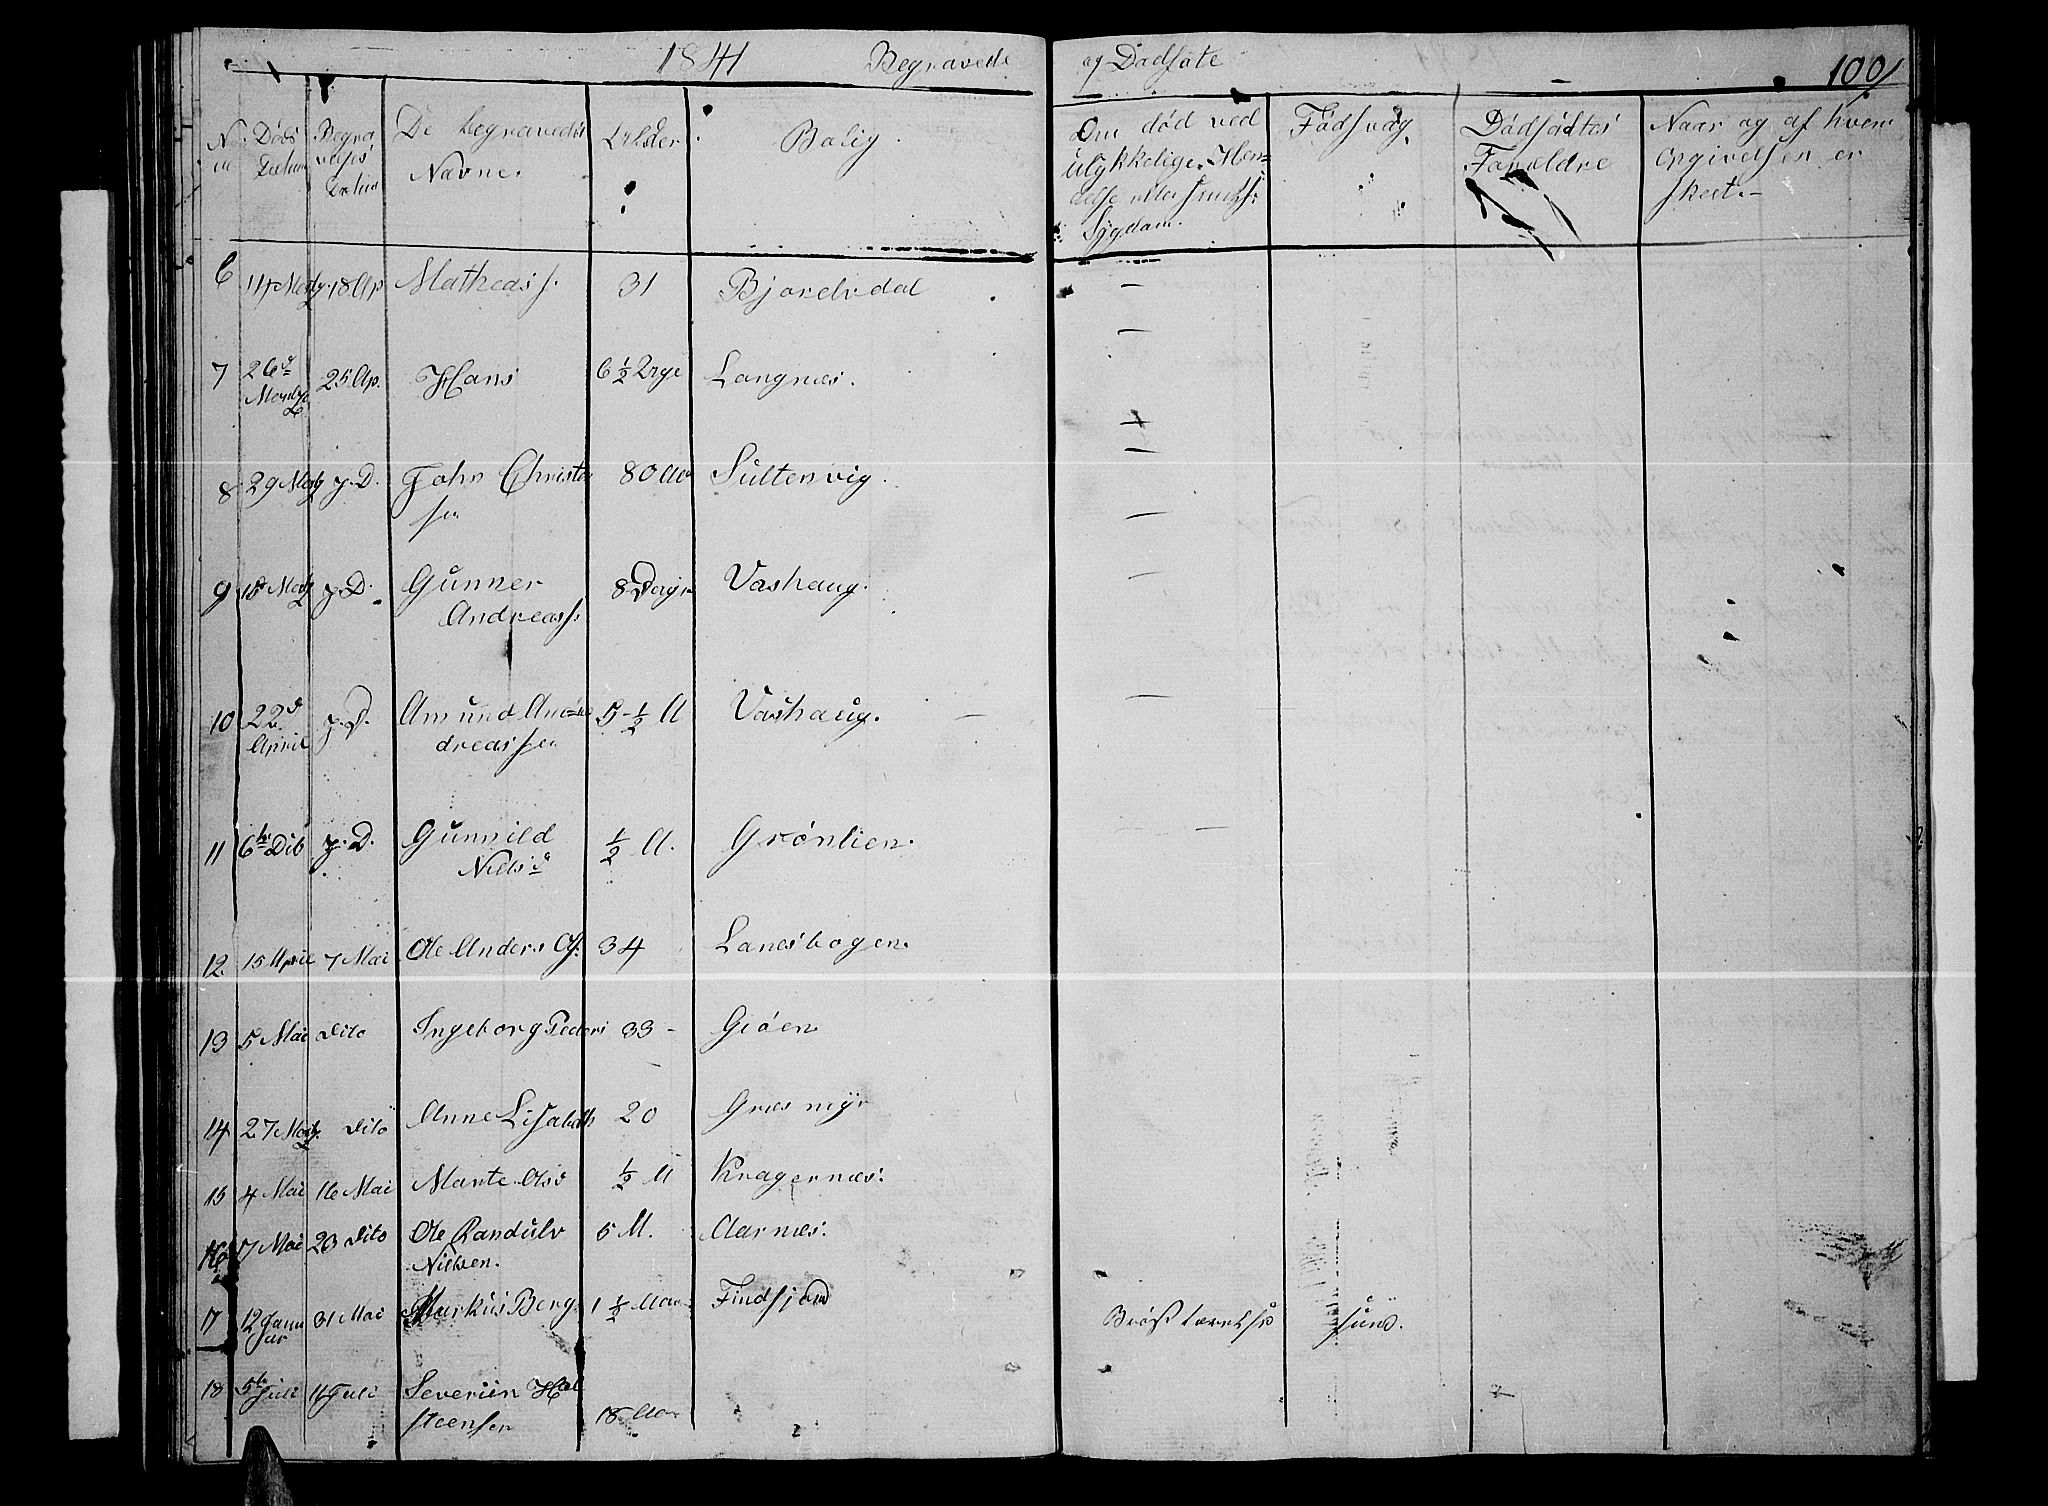 1841 Begravede og Dödföte 100
No Döds Datum
Begravelses Datum
De begravedes Navne.
Alder.
Bolig.
Om död ved ulykkelige Hændelse eller smits: Sygdom.
Födsvag
Dödfödtes Forældre
Naar og af hvem Opgivelsen er skeet.
6 14 Marty 18 Ap Matheas f. 31 Bjorelvdal —
7 26d Martz 25 Ap. Hans 6 1/2 Langnæs. —
8 29 Martz p. D. John Christensen 80 Aar Sultenvig. —
9 15 Martz p. D. Gunner Andreass. 8 Dage Vashaug. —
10 22d April p. D. Amund Andreassen 5 - 1/2 A Vashaug. —
11 6te Dito p. D. Gunnild Nielsd 1/2 A. Grönlien. —
12. 15 April 7 Mai Ole Anders Ols. 34 Lanesbogen.
13 5 Mai Dito Ingeborg Peders 33 - Giöen
14 27 Martz. Dito Anne Lisabeth 20 Græsmyr
15 4 Mai 16 Mai Marte Olsd 1/2 A Kragernæs:
16 17 Mai 23 Dito Ole Randulv Nielsen. 5 M. Aarnæs:
17 12 Januar 31 Mai Markus Berg 1 1/2 Aar Findfjord Bröst sund.
18 5te Juli 11 Juli Severiin Holsteensen 18 Aar